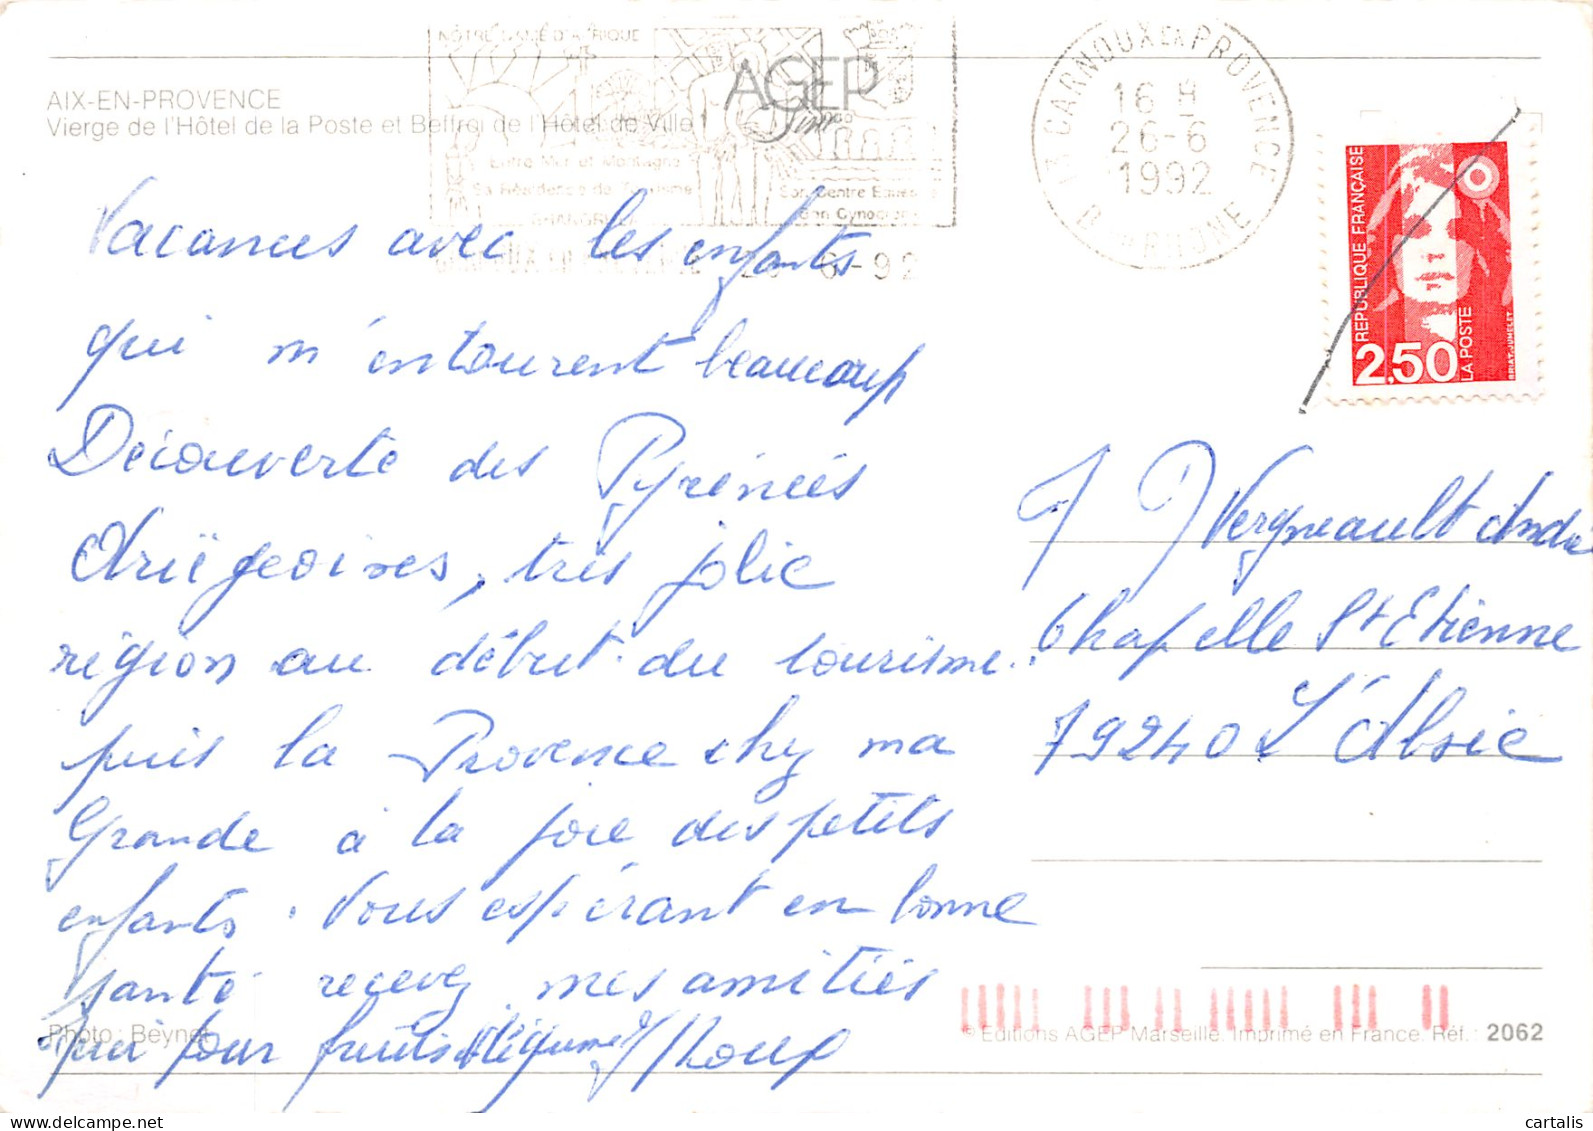 AIX-EN-PROVENCE
Vierge de l'Hôtel de la Poste et Beffroi de l'Hôtel de Ville
NOTRE DAME D'AFRIQUE
AGEP
Entre Mer et Montagne
Sa Résidence de Tourisme
SHANGRI-LA
Son Centre Equestre
Son Cynodrome
13 CARNOUX EN PROVENCE
16 H
26-6
1992
B. DU RHONE
REPUBLIQUE FRANÇAISE
2,50
LA POSTE
BRIAT-JUMELET
Vacances avec les enfants
qui m'entourent beaucoup
Découverte des Pyrénéés
Ariégeoises, très jolie
région au début du tourisme.
puis la Provence chez ma
Grande à la joie des petits
enfants. Vous espérant en bonne
santé recevez mes amitiés
pour fruits légumes
Vergneault André
6 Chapelle St Etienne
79240 L'Absie
Photo : Beynet
© Editions AGEP Marseille. Imprimé en France. Réf. : 2062
cartalis